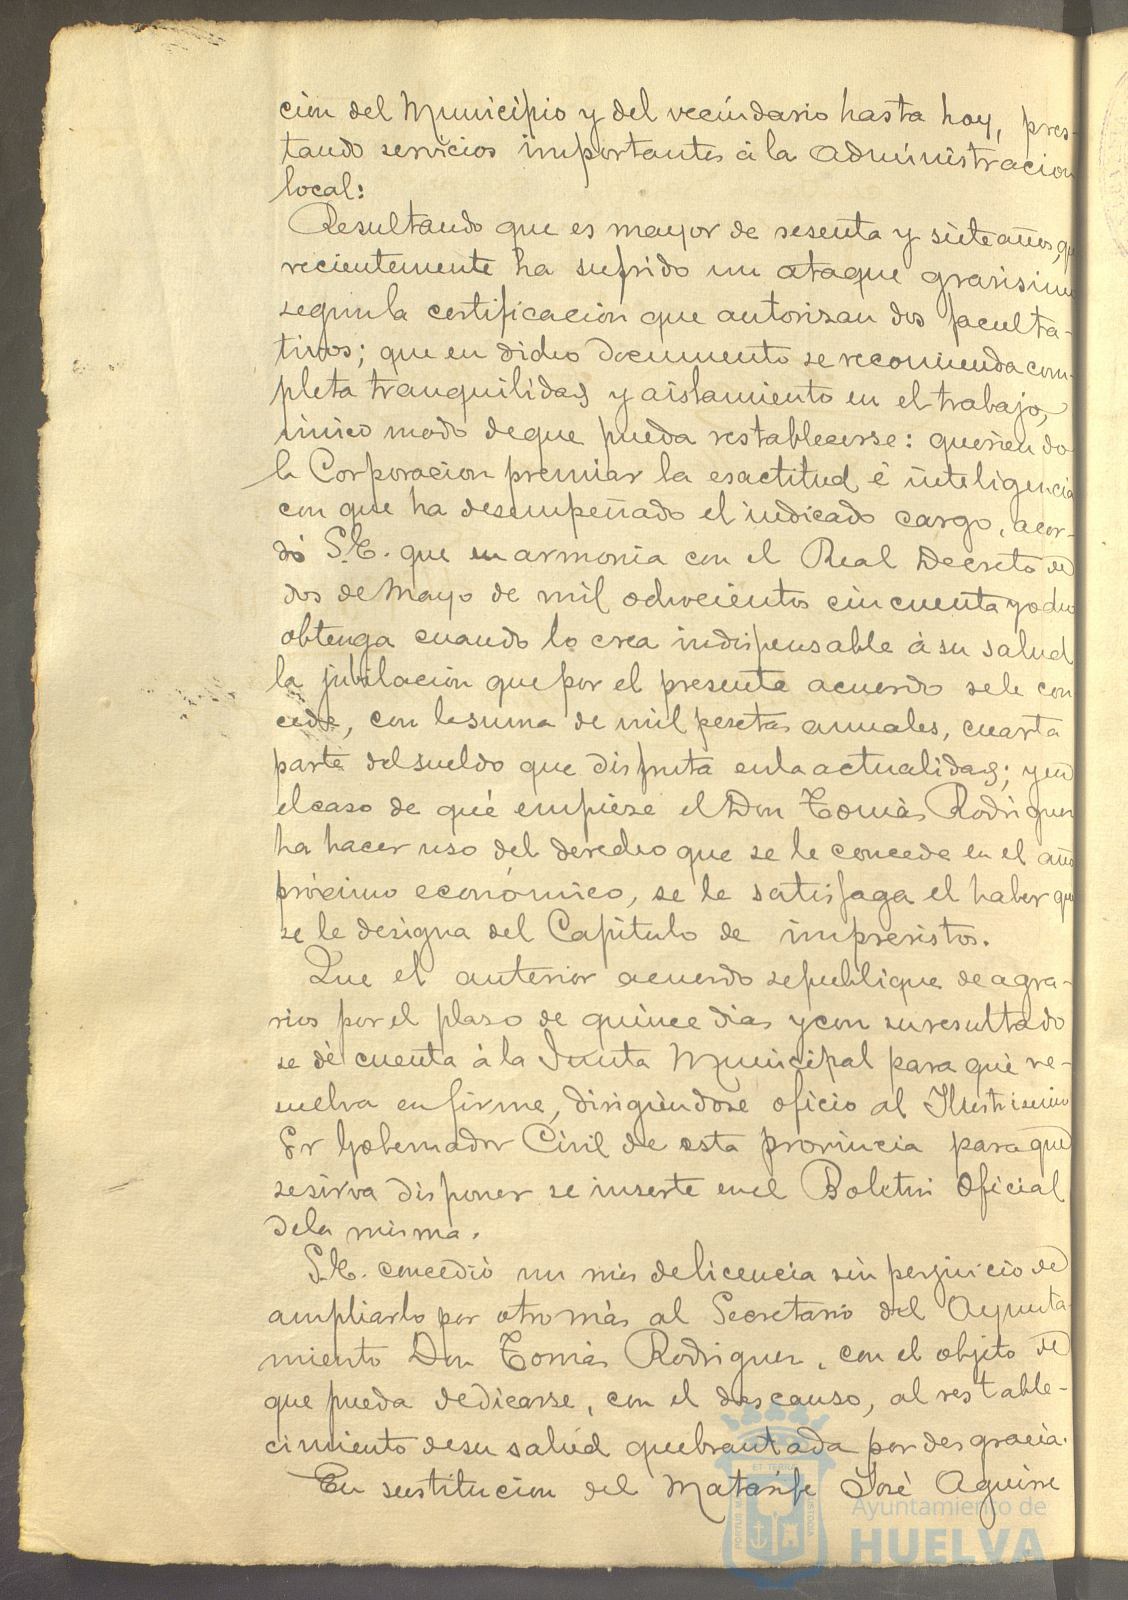 cion del Municipio y del vecindario hasta hoy, pres-
tando servicios importantes á la administracion
local:
Resultando que es mayor de sesenta y siete años, que
recientemente ha sufrido un ataque gravisimo
segun la certificacion que autorizan dos faculta-
tivos; que en dicho documento se recomienda com-
pleta tranquilidad y aislamiento en el trabajo,
unico modo de que pueda restablecerse: queriendo
la Corporacion premiar la esactitud é inteligencia
con que ha desempeñado el indicado cargo, acor-
dó S.E. que en armonia con el Real Decreto de
dos de Mayo de mil ochocientos cincuenta y ocho
obtenga cuando lo crea indispensable á su salud
la jubilacion que por el presente acuerdo se le con
cede, con la suma de mil pesetas anuales, cuarta
parte del sueldo que disfruta en la actualidad; y en
el caso de qué empiese el Don Tomás Rodriguez
ha hacer uso del derecho que se le concede en el año
próximo económico, se le satisfaga el haber que
se le designa del Capitulo de imprevistos.
Que el anterior acuerdo se publique de agra-
vios por el plaso de quince dias y con su resultado
se dé cuenta á la Junta Municipal para qué re-
suelva en firme, dirigiendose oficio al Ilustrisimo
Sr Gobernador Civil de esta provincia para que
se sirva disponer se inserte en el Boletin Oficial
de la misma.
S.E. concedió un mes de licencia sin perjuicio de
ampliarlo por otro más al Secretario del Ayunta
miento Don Tomás Rodriguez, con el objeto de
que pueda dedicarse, con el descanso, al restable-
cimiento de su salud quebrantada por desgracia.
En sustitucion del Matarife José Aguirre
Ayuntamiento de
HUELVA